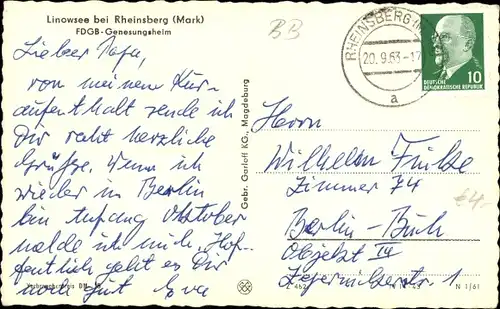 Linowsee bei Rheinsberg (Mark)
FDGB-Genesungsheim
BB
RHEINSBERG (M
20.9.63-17
a
10
DEUTSCHE
DEMOKRATISCHE REPUBLIK
Lieber Papa,
von meinem Kur-
aufenthalt sende ich
Dir recht herzliche
Grüße. Wenn ich
wieder in Berlin
bin Anfang Oktober
melde ich mich. Hof-
fentlich geht es Dir
noch gut Eva
Gebr. Garloff KG., Magdeburg
Herrn
Wilhelm
Zimmer 74
€4,-
Berlin-Buch
Objekt IV
N 1/61